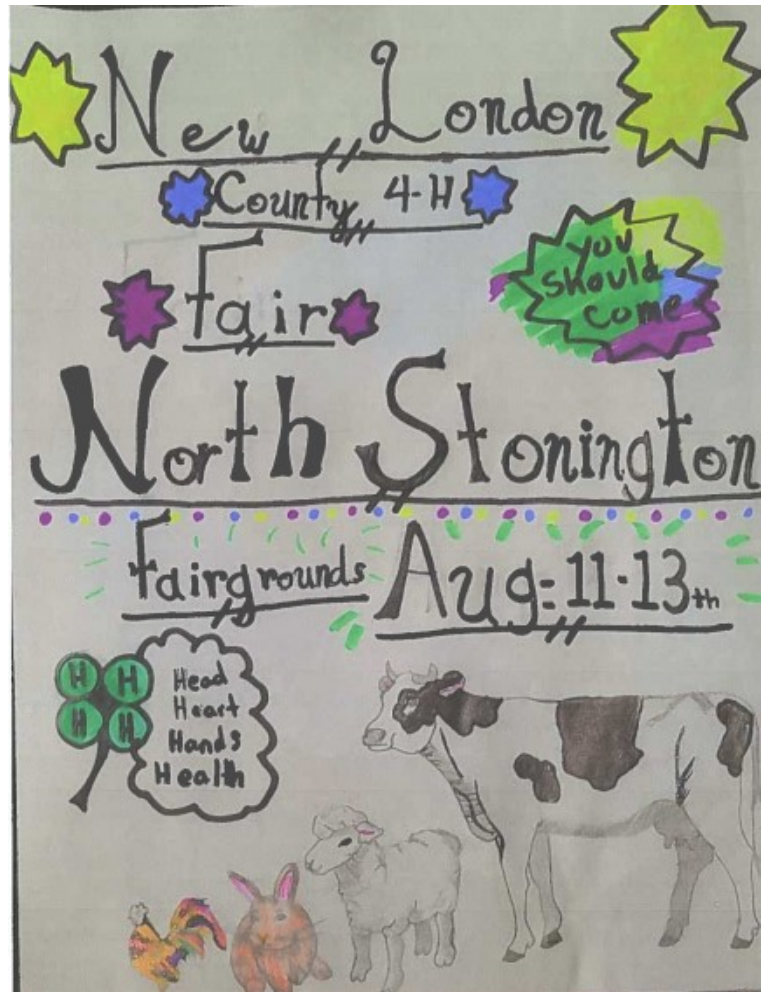 New London
County 4-H
Fair
you
should
come
North Stonington
Fairgrounds Aug: 11-13th
H H
H H
Head
Heart
Hands
Health